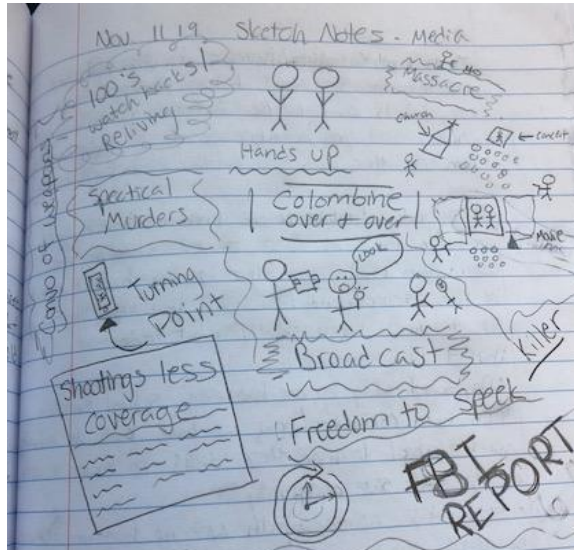 Nov 11 19, Sketch Notes - Media
100's
watch backs!
Reliving
Massacre
Church
Concert
Hands up
Spectical
Murders
Colombine
over & over
Movie
Look
Turning
Point
Broadcast
Killer
Shootings less
coverage
Freedom to Speek
FBI
REPORT
Convo of weapons